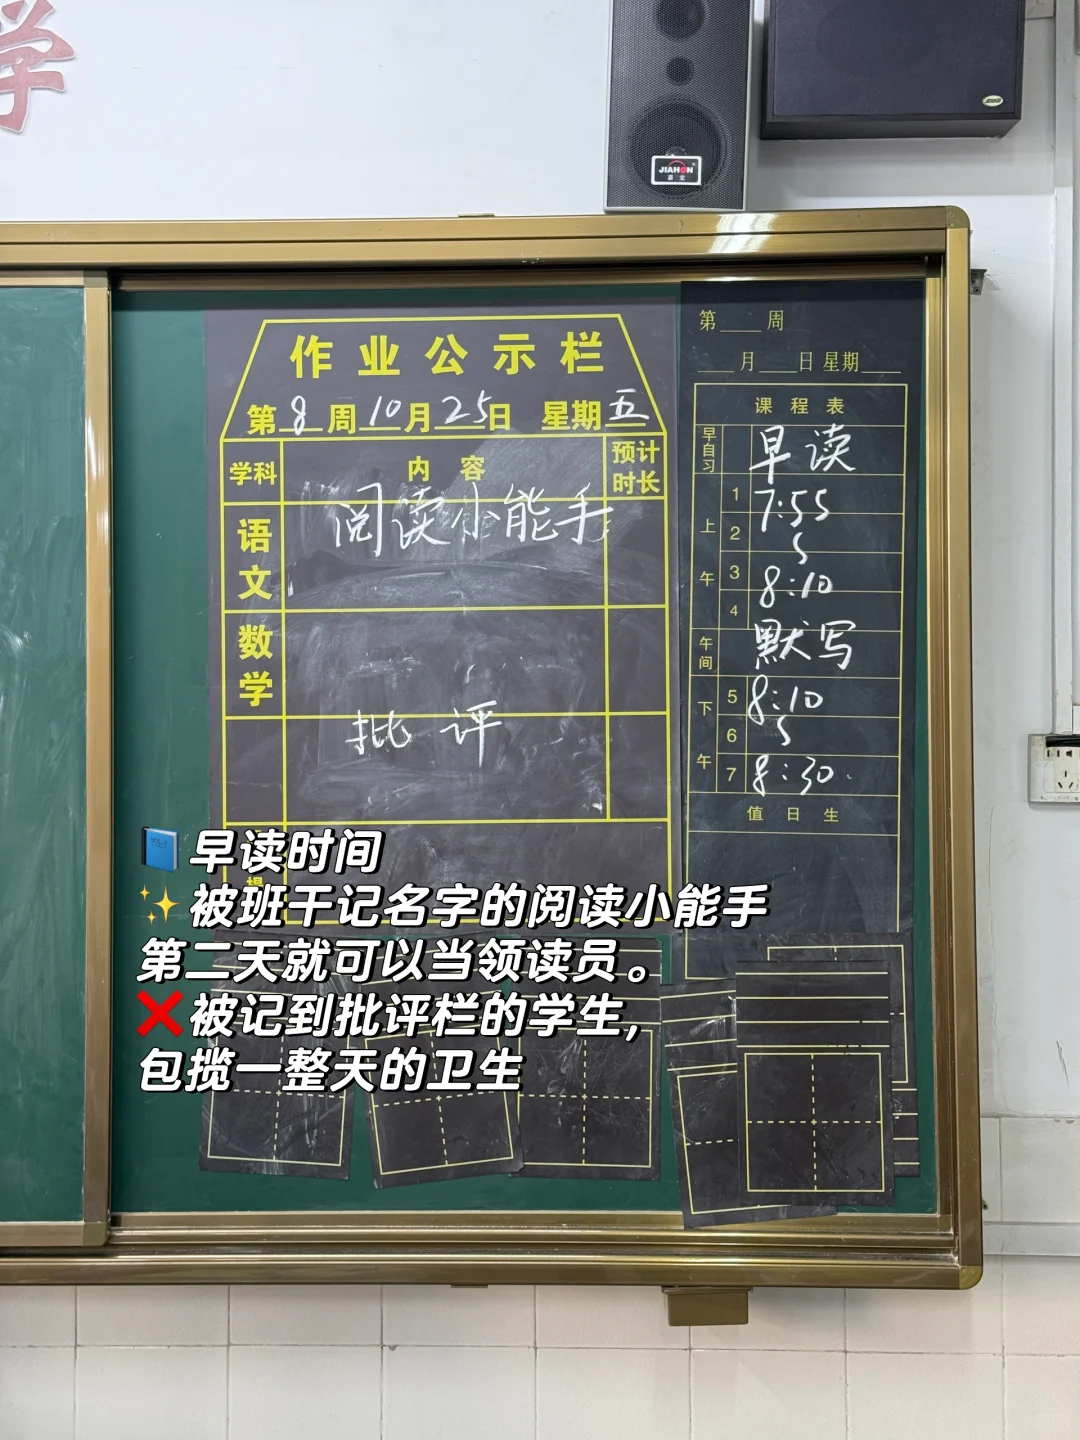 学
JIAHON
作业公示栏
第8周10月25日 星期五
学科 内容 预计时长
阅读小能手
语文
数学
批评
第 周
月 日 星期
课程表
早自习 早读
上午
1 7:55
2
3 8:10
4
午间 默写
下午
5 8:10
6
7 8:30
值日生
📘早读时间
✨被班干记名字的阅读小能手
第二天就可以当领读员。
❌被记到批评栏的学生，
包揽一整天的卫生